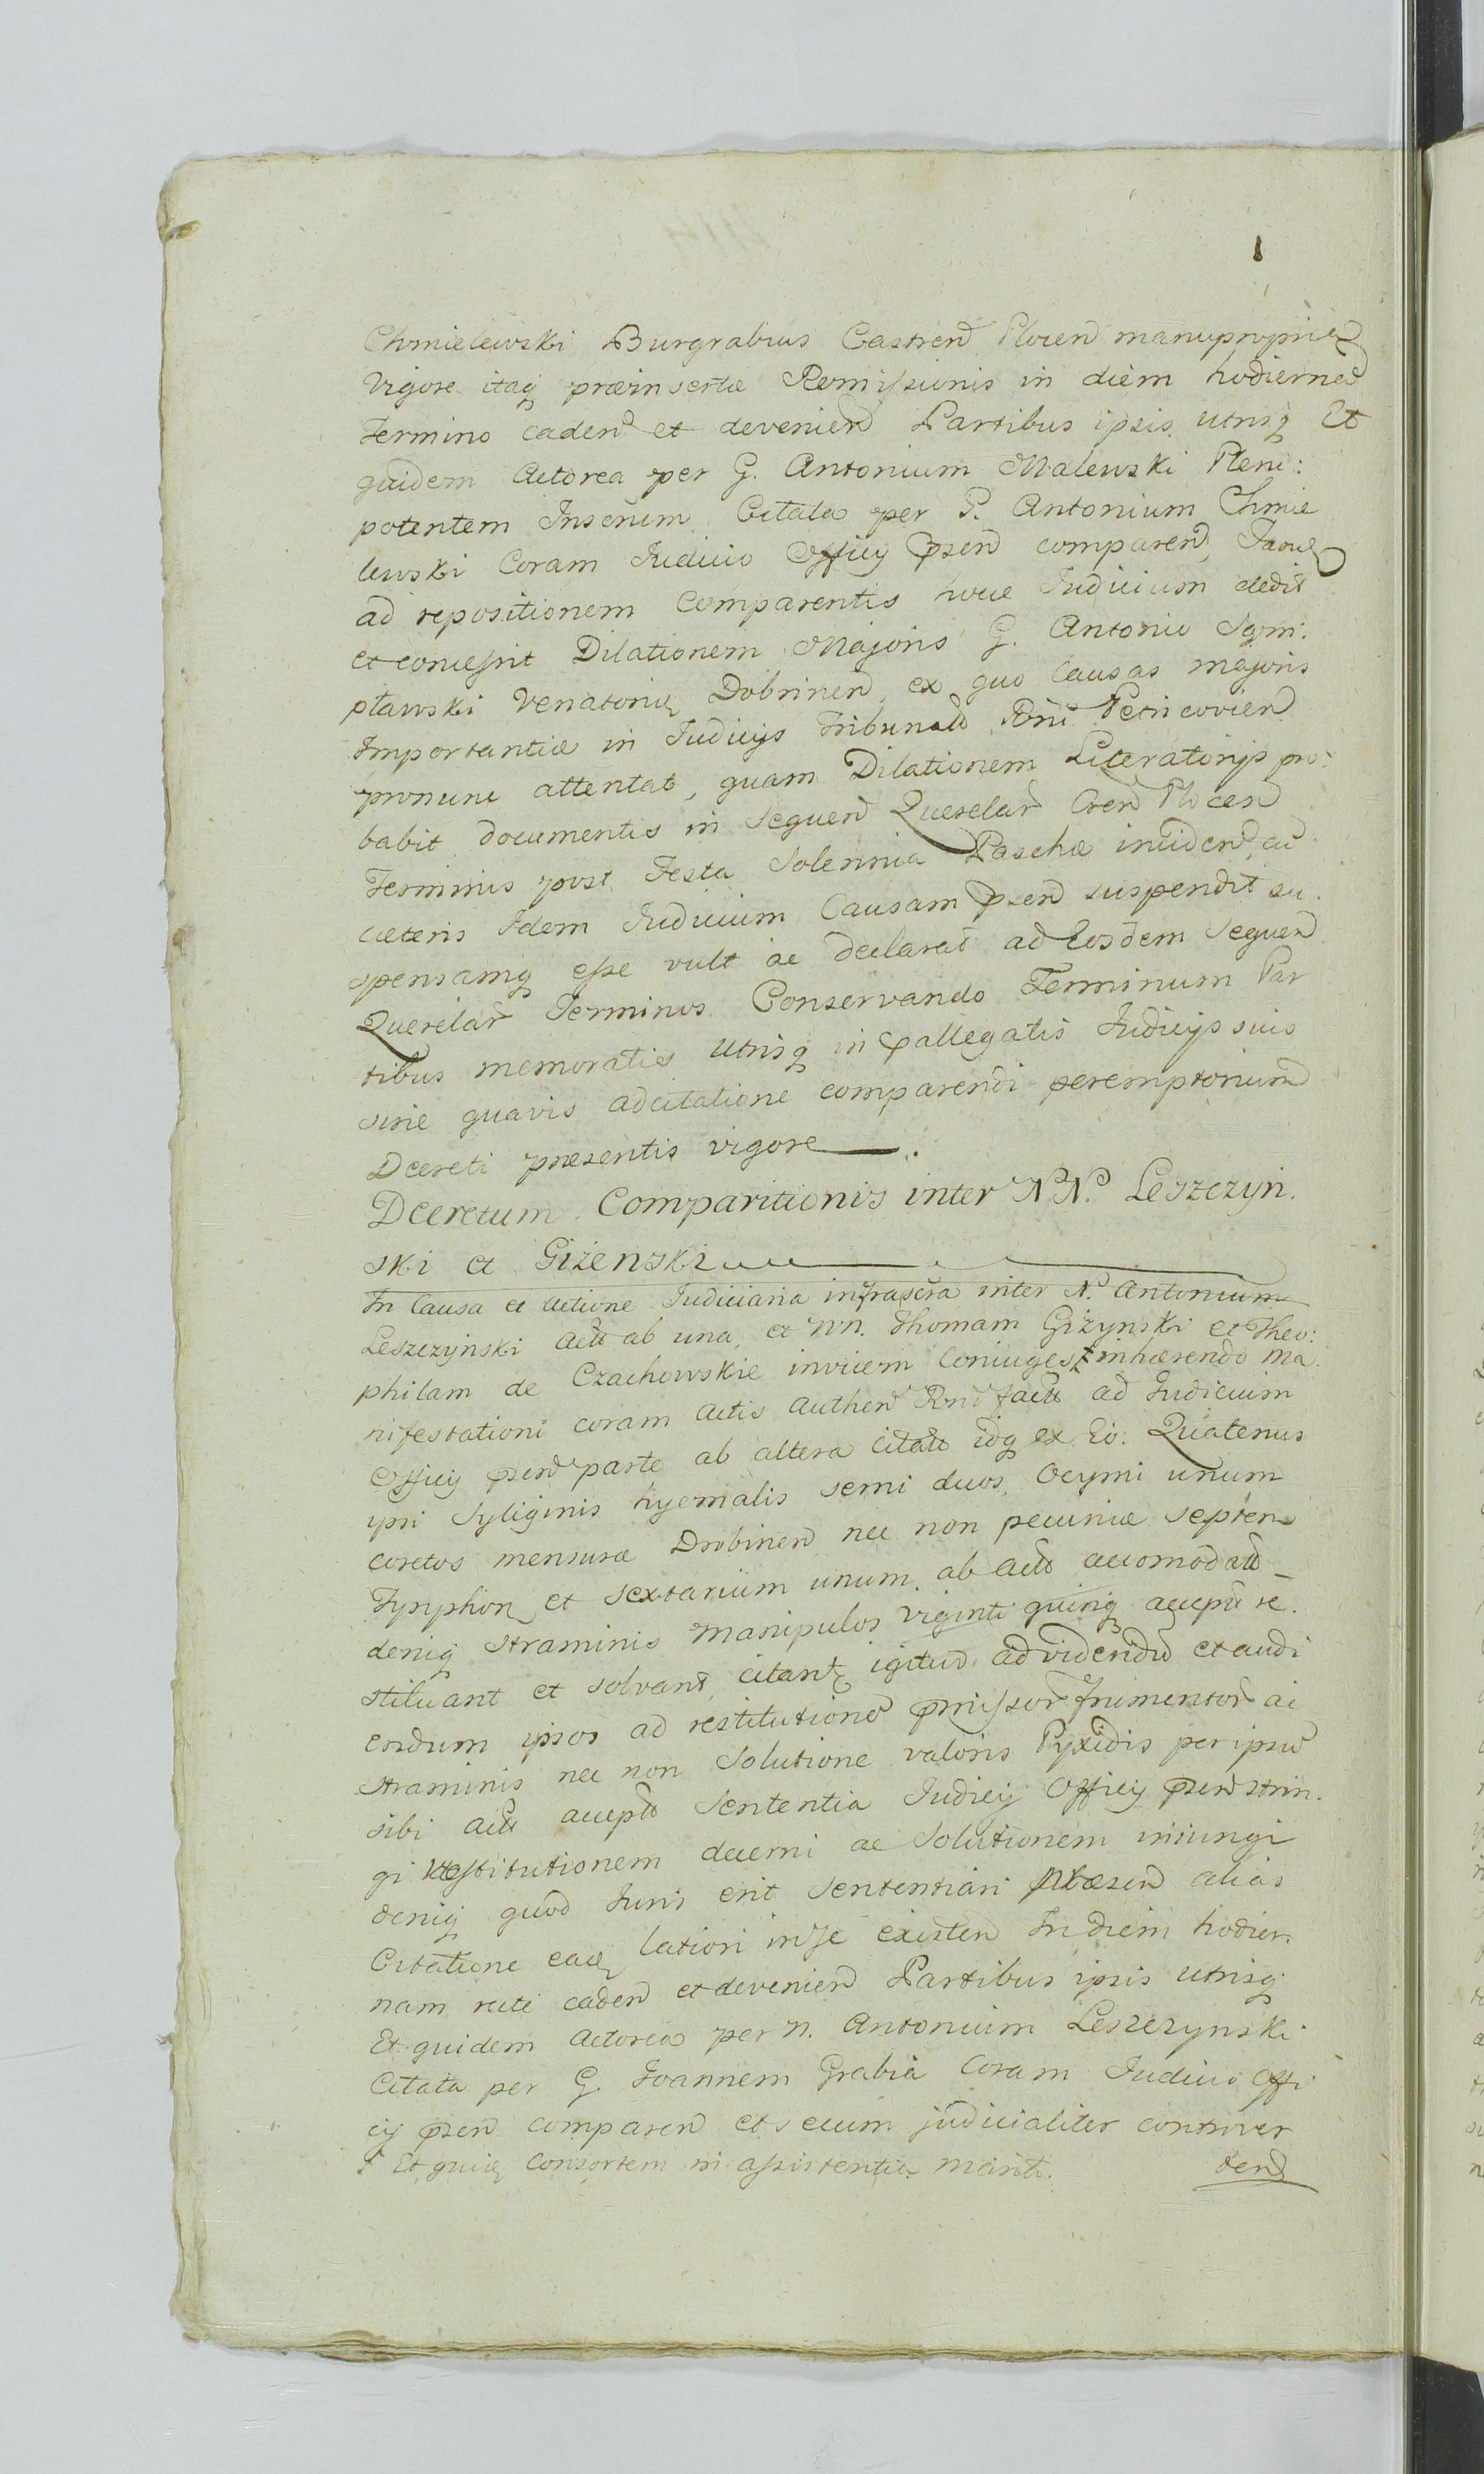 Chmielewski Burgrabius Castren Plocen manuproprie
Vigore itaq præinsertæ Remissionis in diem hodiernā
Termino caden et devenien Partibus ipsis utrisq Et
quidem Actorea per G. Antonium Malewski Pleni:
potentem Insenem Citata per G. Antonium Chmie
lewski Coram Judicio Officij præsen comparen,
ad repositionem Comparentis huic Judicium dedit
et concessit Dilationem Majoris G. Antonio Szym:
pławski Venatori Dobrinen, ex quo Causas majoris
Importantiæ in Judicijs Tribunal Rñi Petricovien
pronunc attentat, quam Dilationem Literatorijs pro:
babit documentis in sequen Querelar Cren Plocen
Terminis post Festa Solennia Paschæ inciden, in
cæteris Idem Judicium Causam præsen suspendit su.
spensamq esse vult ac declarat ad Eosdem sequen
Querelar Terminos. Conservando Terminum Par
tibus memoratis utrisq in præallegatis Judicijs suis
sine quavis adcitatione comparendi peremptorium
Decreti præsentis vigore.
Decretum Comparitionis inter NN. Leszczyń.
ski et Giżenski
In Causa et actione Judiciaria infrascra inter N. Antonium
Leszczynski act ab una, et NN. Thomam Giżynski et Theo:
philam de Czachowskie invicem Coniuges ‡ inhærendo Ma
nifestationi coram actis authen Rni fact ad Judicium
Officij præsen parte ab altera citat idq ex Eo: Quatenus
ipsi Syliginis hyemalis semi duos, Ocymi unum
coretos mensuræ Drobinen nec non pecuniæ septem
Tynphon et sextarium unum, ab act accomodat
deniq straminis manipulos viginti quinq accept re.
stituant et solvant, citant igitur ad videndū et audi
endum ipsos ad restitutionē præmissor frumentor ac
straminis nec non Solutione valoris Pyxidis per ipsos
sibi act accept Sententia Judicij Officij præsen strin.
gi restitutionem decerni ac Solutionem iniungi
deniq quod Juris erit sententiari Præsen alias
Citatione eaq latiori in se existen In diem hodier.
nam rite caden et devenien Partibus ipsis utrisq
Et quidem Actorea per N. Antonium Leszczynski
Citata per G. Joannem Grabia Coram Judicio Offi
cij præsen comparen et secum judicialiter controver
‡ Et quidē Consortem in assistentia mariti. ten